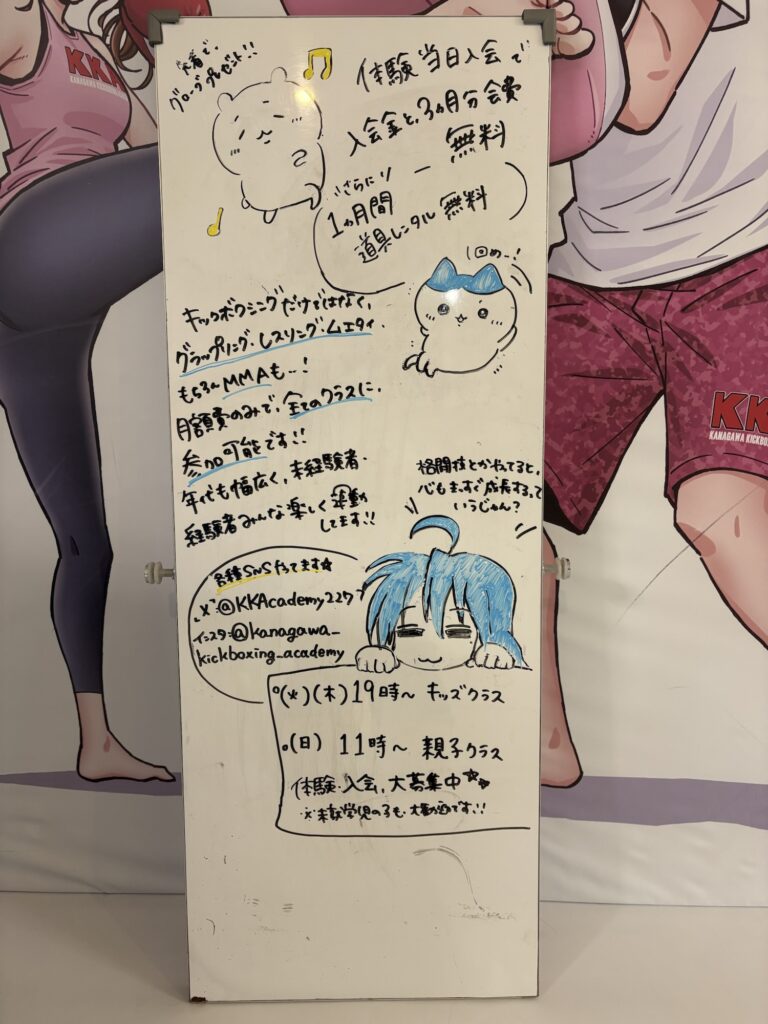 先着で、
グローブプレゼント!!
体験当日入会で
入会金と、3ヵ月分会費
無料
さらに
1ヵ月間
道具レンタル無料
1回めー!
キックボクシングだけではなく、
グラップリング・レスリング・ムエタイ、
もちろんMMAも…!
月額費のみで、全てのクラスに、
参加可能です!!
年代も幅広く、未経験者・
経験者みんな楽しく運動
してます!!
格闘技とかやってると、
心もまっすぐ成長するって
いうじゃん?
各種SNSやってます☆
"X":@KKAcademy227
インスタ:@kanagawa_
kickboxing_academy
○(火)(木)19時〜 キッズクラス
○(日) 11時〜 親子クラス
体験・入会、大募集中☆☆
※未就学児の子も、大歓迎です!!
KKA
KANAGAWA KICKBOXING